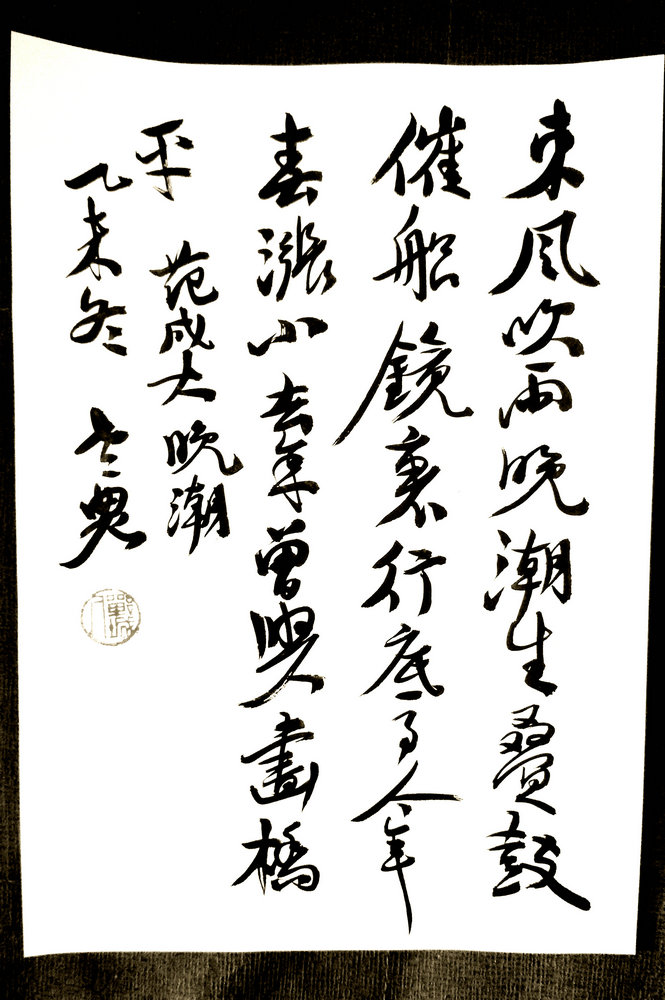 東風吹雨晚潮生疊鼓
催船鏡裏行底事今年
春漲小去年曾與畫橋
平 范成大 晚潮
乙未冬